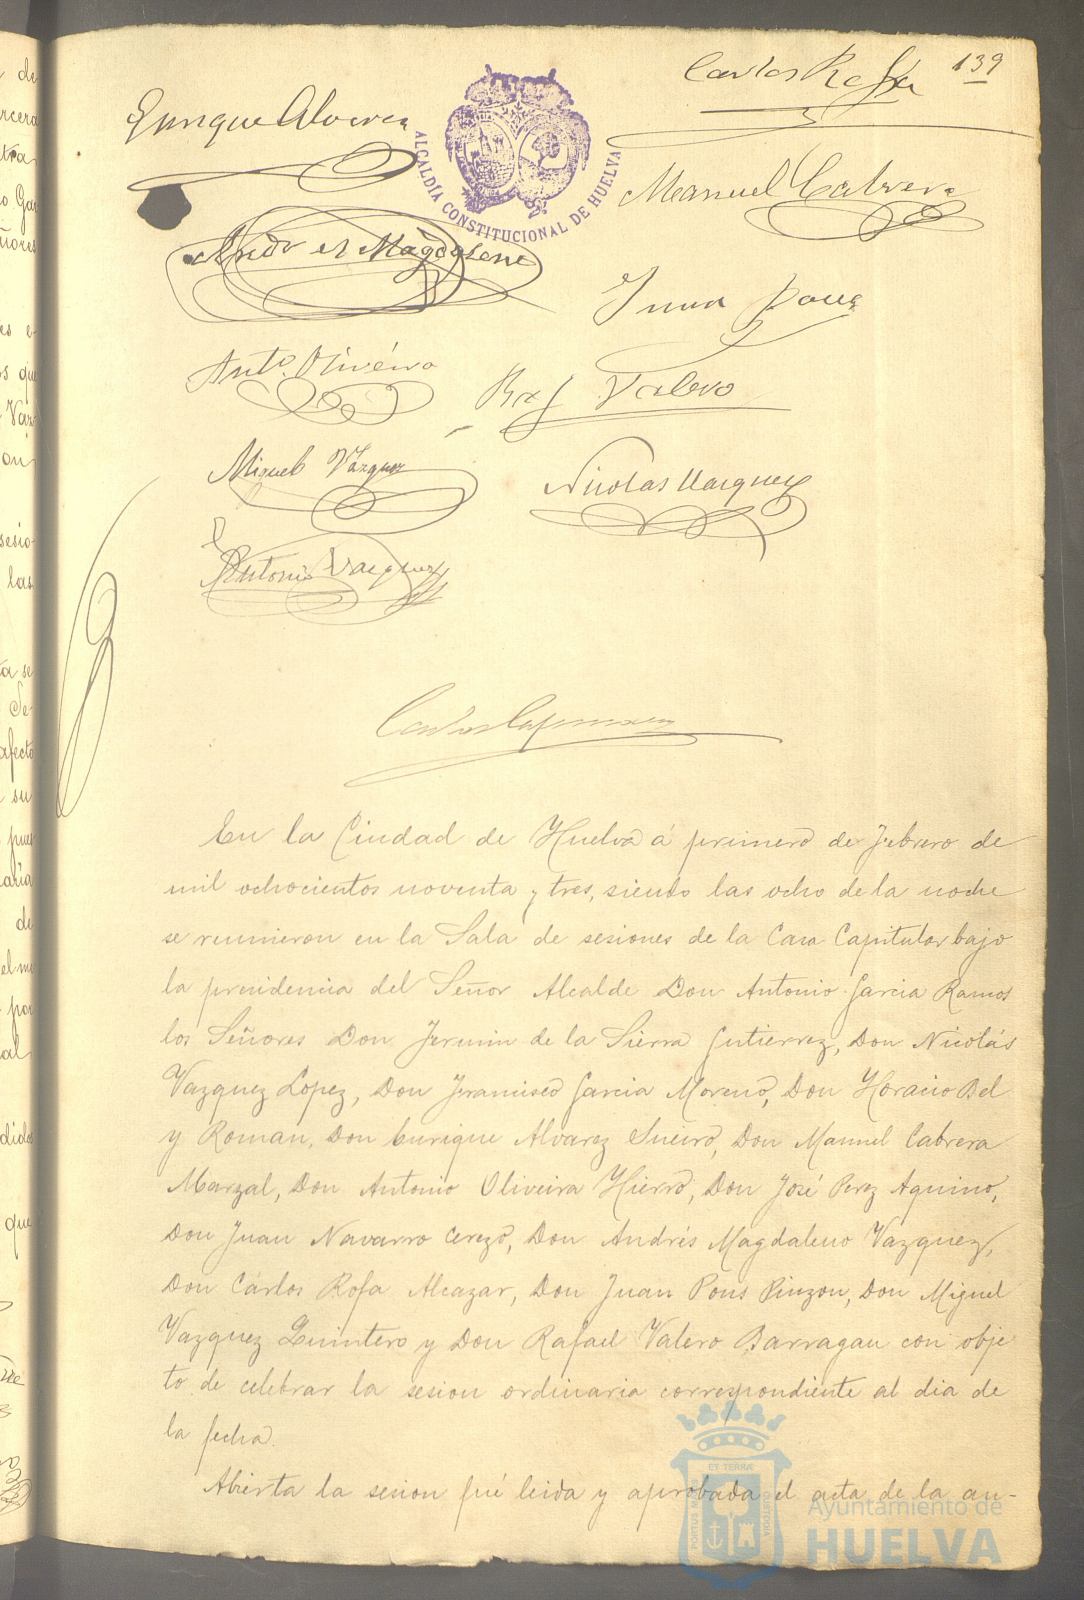 139
Carlos Rofa
Enrique Alvarez
ALCALDÍA CONSTITUCIONAL DE HUELVA
Manuel Cabrera
Andrés Magdaleno
Juan Pons
Antº Oliveira
Raf Valero
Miguel Vázquez
Nicolas Vazquez
Antonio Vazquez
Carlos
En la Ciudad de Huelva á primero de Febrero de
mil ochocientos noventa y tres, siendo las ocho de la noche
se reunieron en la Sala de sesiones de la Casa Capitular bajo
la presidencia del Señor Alcalde Don Antonio Garcia Ramos
los Señores Don Fermin de la Sierra Gutierrez, Don Nicolás
Vazquez Lopez, Don Francisco Garcia Moreno, Don Horacio Bel
y Roman, Don Enrique Alvarez Sueiro, Don Manuel Cabrera
Marzal, Don Antonio Oliveira Hierro, Don José Perez Aquino,
Don Juan Navarro Cerezo, Don Andrés Magdaleno Vazquez,
Don Carlos Rofa Alcazar, Don Juan Pons Pinzon, Don Miguel
Vazquez Quintero y Don Rafael Valero Barragan con obje
to de celebrar la sesion ordinaria correspondiente al dia de
la fecha.
Abierta la sesion fué leida y aprobada el acta de la an-
ET TERRÆ
PORTUS MARIS
CUSTODIA
Ayuntamiento de
HUELVA